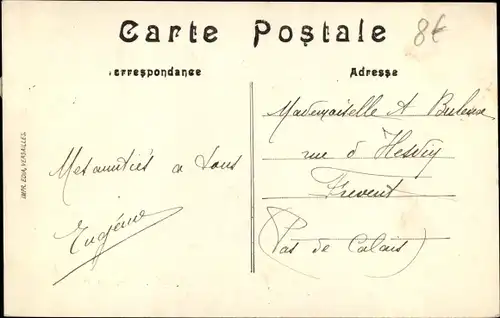 Carte Postale
8€
Correspondance
Adresse
IMP. EDIA, VERSAILLES.
Mademoiselle A
rue d Hesdin
Frevent
(Pas de Calais)
Mes amitiés a tous
Eugénie